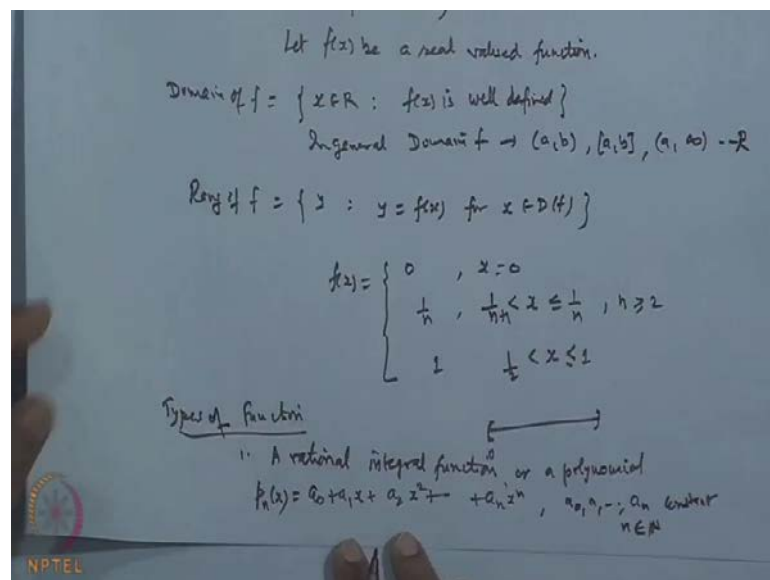 Let f(x) be a real valued function.
Domain of f = { x ∈ R : f(x) is well defined }
In general Domain f → (a,b), [a,b], (a, ∞) -- R
Rang of f = { y : y = f(x) for x ∈ D(f) }
f(x) = { 0 , x = 0
1/n , 1/n+1 < x ≤ 1/n , n ≥ 2
1 1/2 < x ≤ 1
Types of Function
0 1
1. A rational integral function or a polynomial
pₙ(x) = a₀ + a₁x + a₂x² + -- + aₙxⁿ , a₀, a₁, --, aₙ constant
n ∈ N
NPTEL